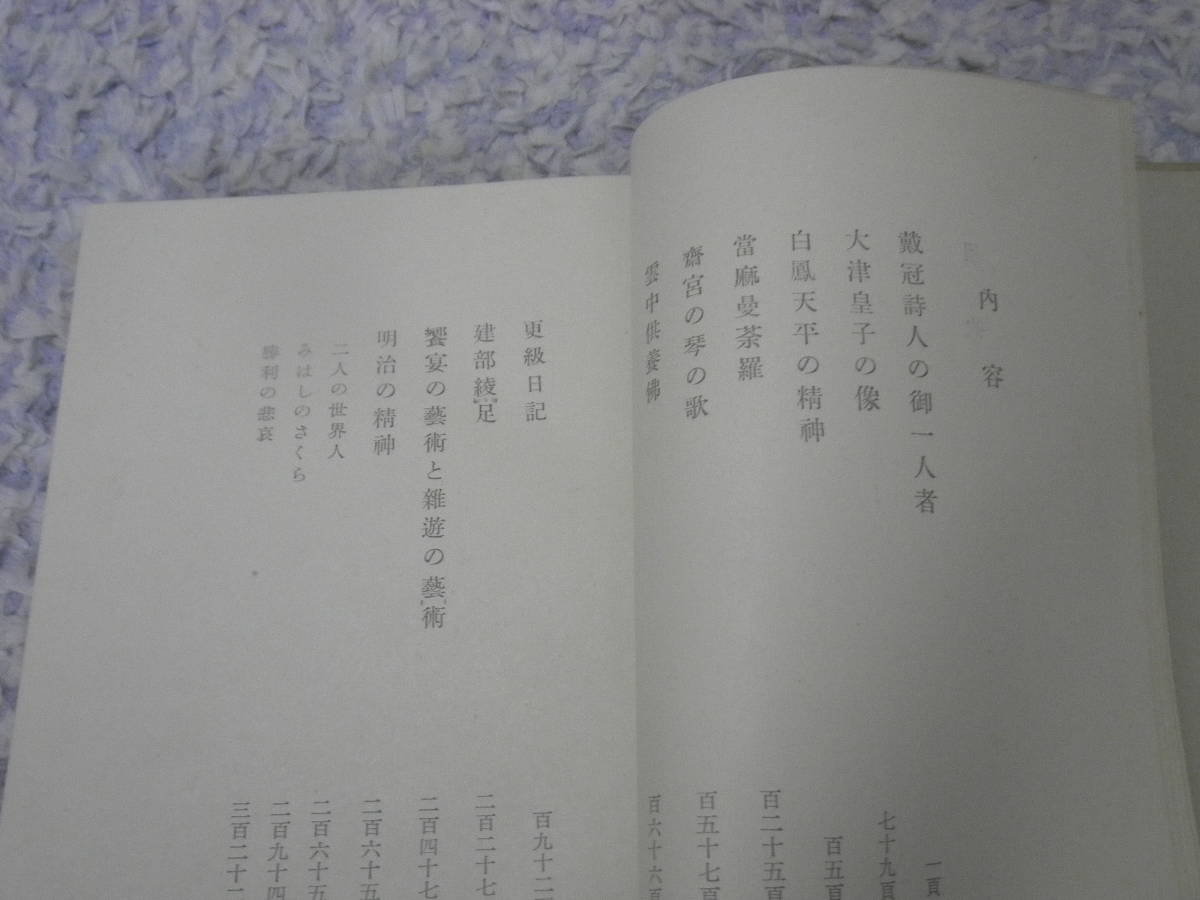 内容
戴冠詩人の御一人者
一頁
大津皇子の像
七十九頁
白鳳天平の精神
百五頁
當麻曼荼羅
百二十五頁
齋宮の琴の歌
百五十七頁
雲中供養佛
百六十六頁
更級日記
百九十二
建部綾足
二百二十七
饗宴の藝術と雜遊の藝術
二百四十七
明治の精神
二百六十五
二人の世界人
二百六十五
みはしのさくら
二百九十四
勝利の悲哀
三百二十二